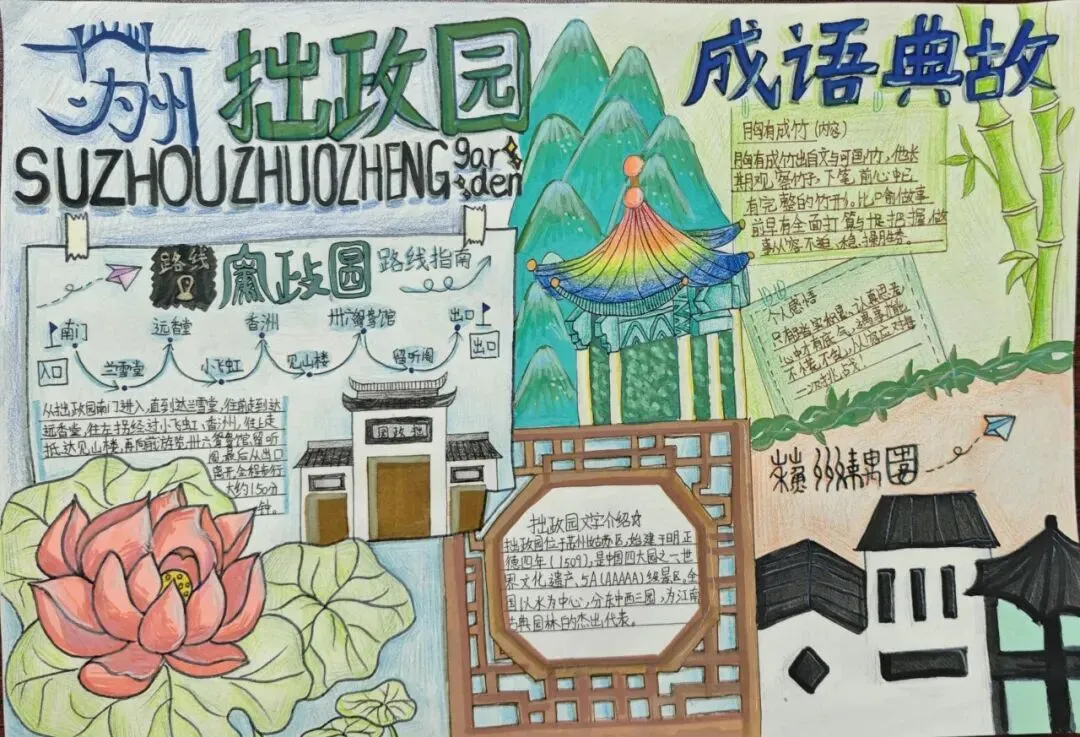 苏州 拙政园
SUZHOUZHUOZHENG
gar
den
成语典故
胸有成竹(内容)
胸有成竹出自文与可画竹,他长
期观察竹子,下笔前心中已
有完整的竹形。比喻做事
前早有全面打算与把握,做
事从容不迫、稳操胜券。
个人感悟
路线
政园
路线指南
南门 远香堂 香洲 卅六鸳鸯馆 出口
入口 兰雪堂 小飞虹 见山楼 留听阁 出口
从拙政园南门进入,直到达兰雪堂,往前走到达
远香堂,往左拐经过小飞虹,香洲,往上走
抵达见山楼,再向西游览卅六鸳鸯馆,留听
阁,最后从出口
离开,全程步行
大约150分
钟。
园政拙
拙政园文字介绍
拙政园位于苏州姑苏区,始建于明正
德四年(1509),是中国四大园之一世
界文化遗产,5A(AAAAA)级景区。全
园以水为中心,分东中西三园,为江南
古典园林的杰出代表。